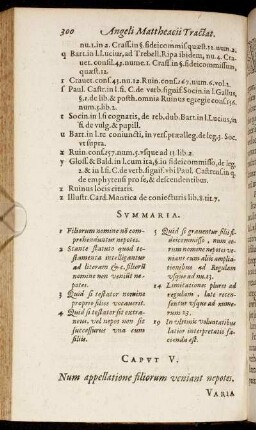 300 Angeli Matthæacii Tractat.
nu.1.in 2. Crass.in §.fideicommiss.quæst.11.num.2.
q Bart.in l.Lucius, ad Trebell. Ripa ibidem, nu.4. Cra-
uet. consil.45.nume.1. Crass.in §.fideicommissum,
quæst.12.
r Crauet.cons.43.nu.12. Ruin.cons.165.num.6.vol.2.
s Paul. Castr.in l.fi. C. de verb.signif. Socin.in l.Gallus,
§.2.de lib. & posth.omnia Ruinus egregie cons.156.
num.5.lib.2.
t Socin.in l.si cognatis, de reb.dub. Bart.in l.Lucius, in
fi. de vulg. & pupill.
u Bart.in l.re coniuncti, in vers.præalleg. de leg.3. Soc.
vt supra.
x Ruin.cons.157.num.5.vsque ad 13.lib.2.
y Gloss. & Bald. in l.cum ita, §.in fideicommisso, de leg.
2. & in l.fi. C. de verb.signif. vbi Paul. Castrens.in q.
de emphyteusi pro se, & descendentibus.
z Ruinus locis citatis.
z Illustr. Card. Mantica de coniecturis lib.8.tit.7.
SVMMARIA.
1 Filiorum nomine nõ com-
prehenduntur nepotes.
2 Stante statuto quod te-
stamenta intelligantur
ad literam &c. filiorũ
nomine non veniũt ne-
potes.
3 Quid si testator nomine
proprio filios vocauerit.
4 Quid si testator sit extra-
neus, vel nepos non sit
successurus vna cum
filiis.
5 Quid si grauentur filii fi-
deicommisso, num eo-
rum nomine nepotes ve-
niant cum aliis amplia-
tionibus ad Regulam
vsque ad nu.13.
14 Limitationes plures ad
regulam, late recen-
sentur vsque ad nume-
rum 13.
19 In vltimis voluntatibus
latior interpretatio fa-
cienda est.
CAPVT V.
Num appellatione filiorum veniant nepotes.
VARIA